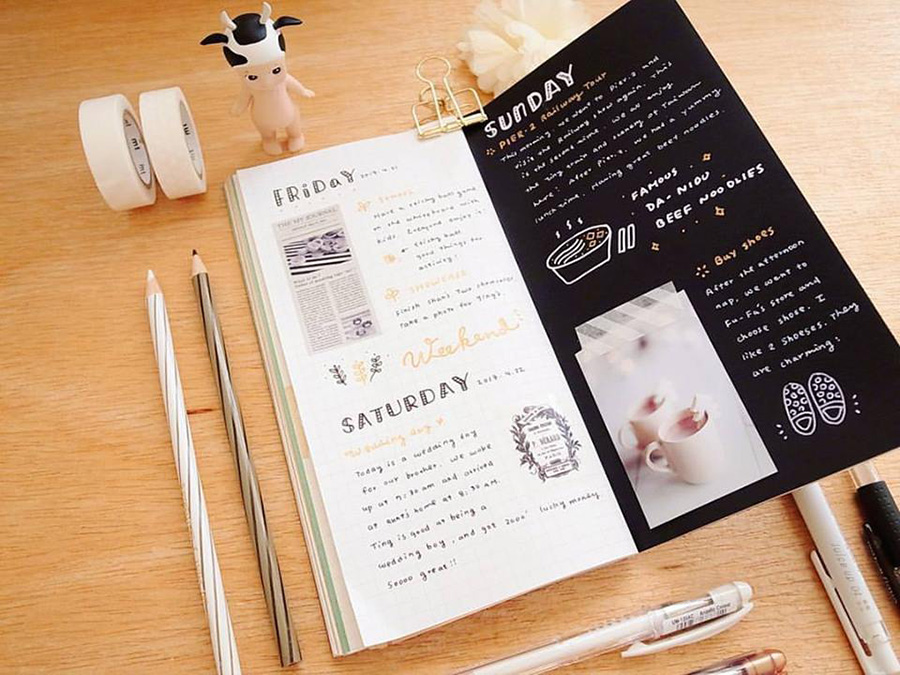 FRiDaY 2017.4.21
SCHOOL
Have a sticky ball game
on the whiteboard with
kids. Everyone enjoy it
sticky ball
good things for
activity!
SHOWCASE
Finish short
Take a photo for
Weekend
SATURDAY 2017.4.22
Wedding day
Today is a wedding day
for our brother. We woke
up at 7:30 am and arrived
at aunt's home at 8:30 am.
Ting is good at being a
wedding boy, and got 2000 lucky money.
Soooo great!!
SUNDAY
PIER-2 Railway Tour
This morning, we went to Pier-2 and
visit the Railway show again. This
is the second time. We all enjoy
the tiny train and scenery of Taiwan
here! After Pier-2, we had a yummy
lunch time. Having great beef noodles.
FAMOUS
DA-NIOU
BEEF NOODLES
Buy shoes
After the afternoon
nap, we went to
Fu-Fu's store and
choose shoes. I
like 2 shoeses. They
are charming!
mt